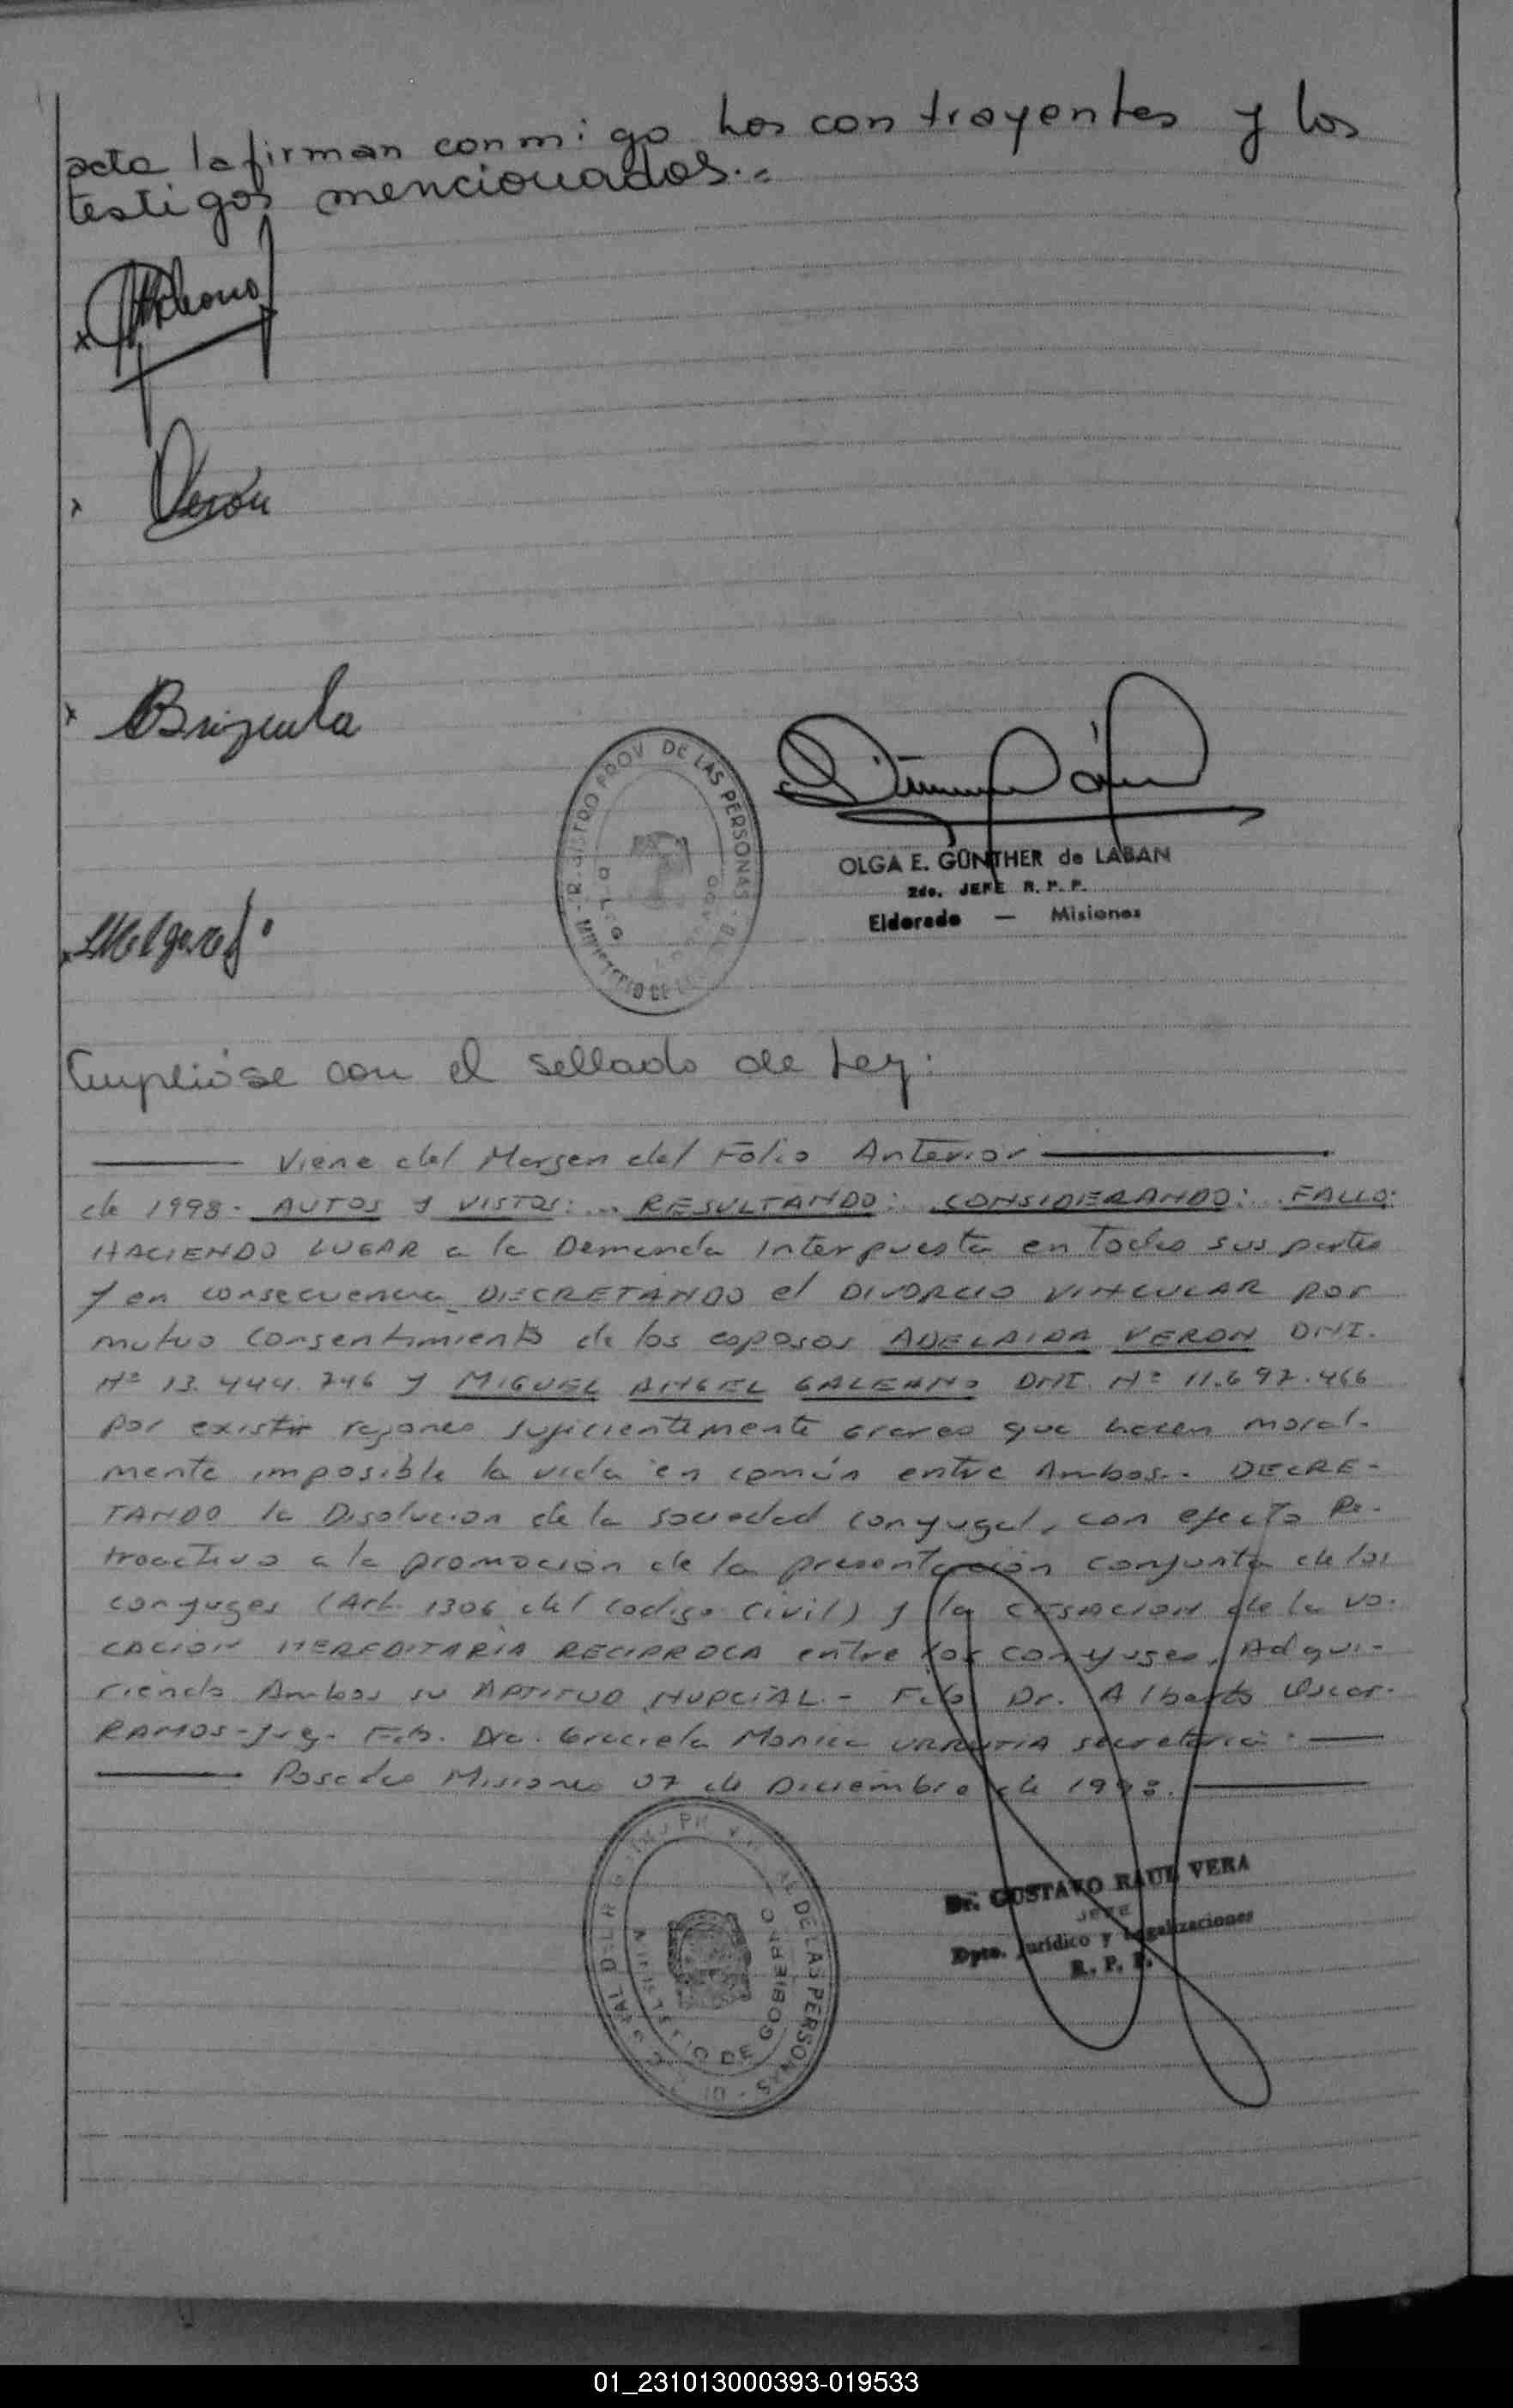 acta la firman conmigo los contrayentes y los
testigos mencionados.-
x
x Verón
x Brizuela
OLGA E. GÜNTHER de LABAN
2do. JEFE R. P. P.
Eldorado — Misiones
x Melgarej
REGISTRO PROV DE LAS PERSONAS
Cumplióse con el sellado de Ley:
Viene del Margen del Folio Anterior
de 1998.- AUTOS Y VISTOS: ... RESULTANDO: . CONSIDERANDO: .. FALLO:
HACIENDO LUGAR a la Demanda Interpuesta en Todas sus partes
y en consecuencia DECRETANDO el DIVORCIO VINCULAR por
mutuo consentimiento de los esposos ADELAIDA VERON DNI.
Nº 13.444.746 y MIGUEL ANGEL GALEANO DNI Nº 11.697.466
por existir razones suficientemente Graves que hacen moral-
mente imposible la vida en común entre Ambos.- DECRE-
TANDO la Disolucion de la sociedad conyugal, con efecto Re-
troactivo a la promoción de la presentación conjunta de los
conyuges (Art. 1306 del Codigo Civil) y la CESACION de la VO-
CACION HEREDITARIA RECIPROCA entre los conyuges, Adqui-
riendo Ambos su APTITUD NUPCIAL.- Fdo Dr. Alberto Oscar
RAMOS-Juez- Fdo. Dra. Graciela Monica URRUTIA secretaria.-
Posadas Misiones 07 de Diciembre de 1998.
Dr. GUSTAVO RAUL VERA
JEFE
Dpto. Jurídico y Legalizaciones
R. P. P.
DE LAS PERSONAS
MINISTERIO DE GOBIERNO
01_231013000393-019533